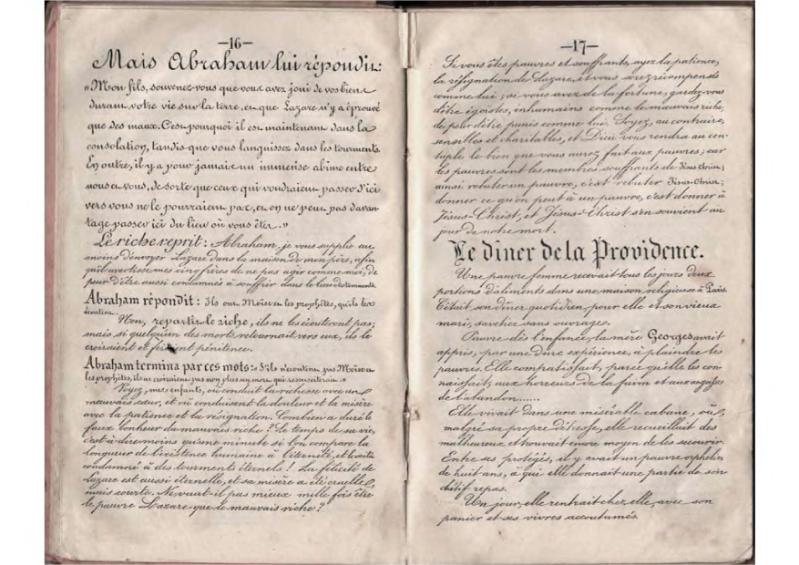 —16—
Mais Abraham lui répondit:
«Mon fils, souvenez-vous que vous avez joui de vos biens
durant votre vie sur la terre, et que Lazare n'y a éprouvé
que des maux. C'est pourquoi il est maintenant dans la
consolation, tandis que vous languissez dans les tourments.
En outre, il y a pour jamais un immense abîme entre
nous et vous, de sorte que ceux qui voudraient passer d'ici
vers vous ne le pourraient pas, et on ne peut pas davan-
tage passer ici du lieu où vous êtes.»
Le riche reprit: Abraham, je vous supplie au
moins d'envoyer Lazare dans la maison de mon père, afin
qu'il avertisse mes cinq frères de ne pas agir comme moi, de
peur d'être aussi condamnés à souffrir dans le lieu des tourments.
Abraham répondit: Ils ont Moïse et les prophètes, qu'ils les
écoutent.
Non, repartit le riche, ils ne les écouteront pas;
mais si quelqu'un des morts retournait vers eux, ils le
croiraient et feraient pénitence.
Abraham termina par ces mots: S'ils n'écoutent pas Moïse et
les prophètes, ils ne croiraient pas non plus un mort qui ressusciterait.
Voyez, mes enfants, où conduit la richesse avec un
mauvais cœur, et où conduisent la douleur et la misère
avec la patience et la résignation. Combien a duré le
faux bonheur du mauvais riche? Le temps de sa vie,
c'est-à-dire moins qu'une minute si l'on compare la
longueur de l'existence humaine à l'éternité, et le voilà
condamné à des tourments éternels! La félicité de
Lazare est aussi éternelle, et sa misère a été cruelle,
mais courte. Ne vaut-il pas mieux mille fois être
le pauvre Lazare que le mauvais riche?
—17—
Si vous êtes pauvres et souffrants, ayez la patience,
la résignation de Lazare, et vous serez récompensés
comme lui; si vous avez de la fortune, gardez-vous
d'être égoïstes, inhumains comme le mauvais riche,
de peur d'être punis comme lui. Soyez, au contraire,
sensibles et charitables, et Dieu vous rendra au cen-
tuple le bien que vous aurez fait aux pauvres; car
les pauvres sont les membres souffrants de Jésus-Christ;
ainsi rebuter un pauvre, c'est rebuter Jésus-Christ;
donner ce qu'on peut à un pauvre, c'est donner à
Jésus-Christ, et Jésus-Christ s'en souvient au
jour de notre mort.
Le dîner de la Providence.
Une pauvre femme recevait tous les jours deux
portions d'aliments dans une maison religieuse à Paris.
C'était son dîner quotidien, pour elle et son vieux
mari, san̂tez sans ouvrages.
Pauvre dès l'enfance, la mère Georges avait
appris, par une dure expérience, à plaindre les
pauvres. Elle compatissait, parce qu'elle les con-
naissait, aux horreurs de la faim et aux angoisses
de l'abandon......
Elle vivait dans une misérable cabane, où,
malgré sa propre détresse, elle recueillait des
malheureux et trouvait encore moyen de les secourir.
Entre ses protégés, il y avait un pauvre orphelin
de huit ans, à qui elle donnait une partie de son
chétif repas.
Un jour, elle rentrait chez elle, avec son
panier et ses vivres accoutumés.